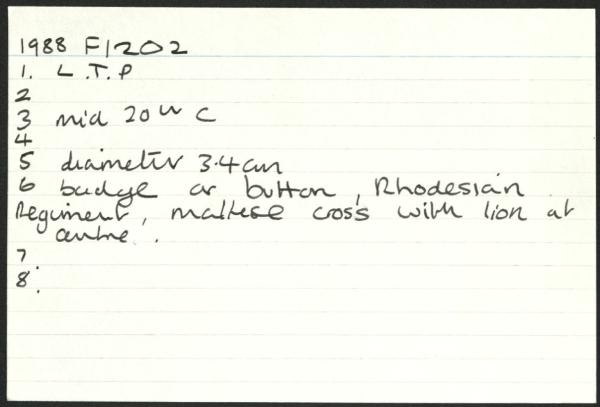 1988 F1202
1. L.T.P
2
3 mid 20th C
4
5 diameter 3.4cm
6 badge or button, Rhodesian
Regiment, maltese cross with lion at
centre.
7.
8.